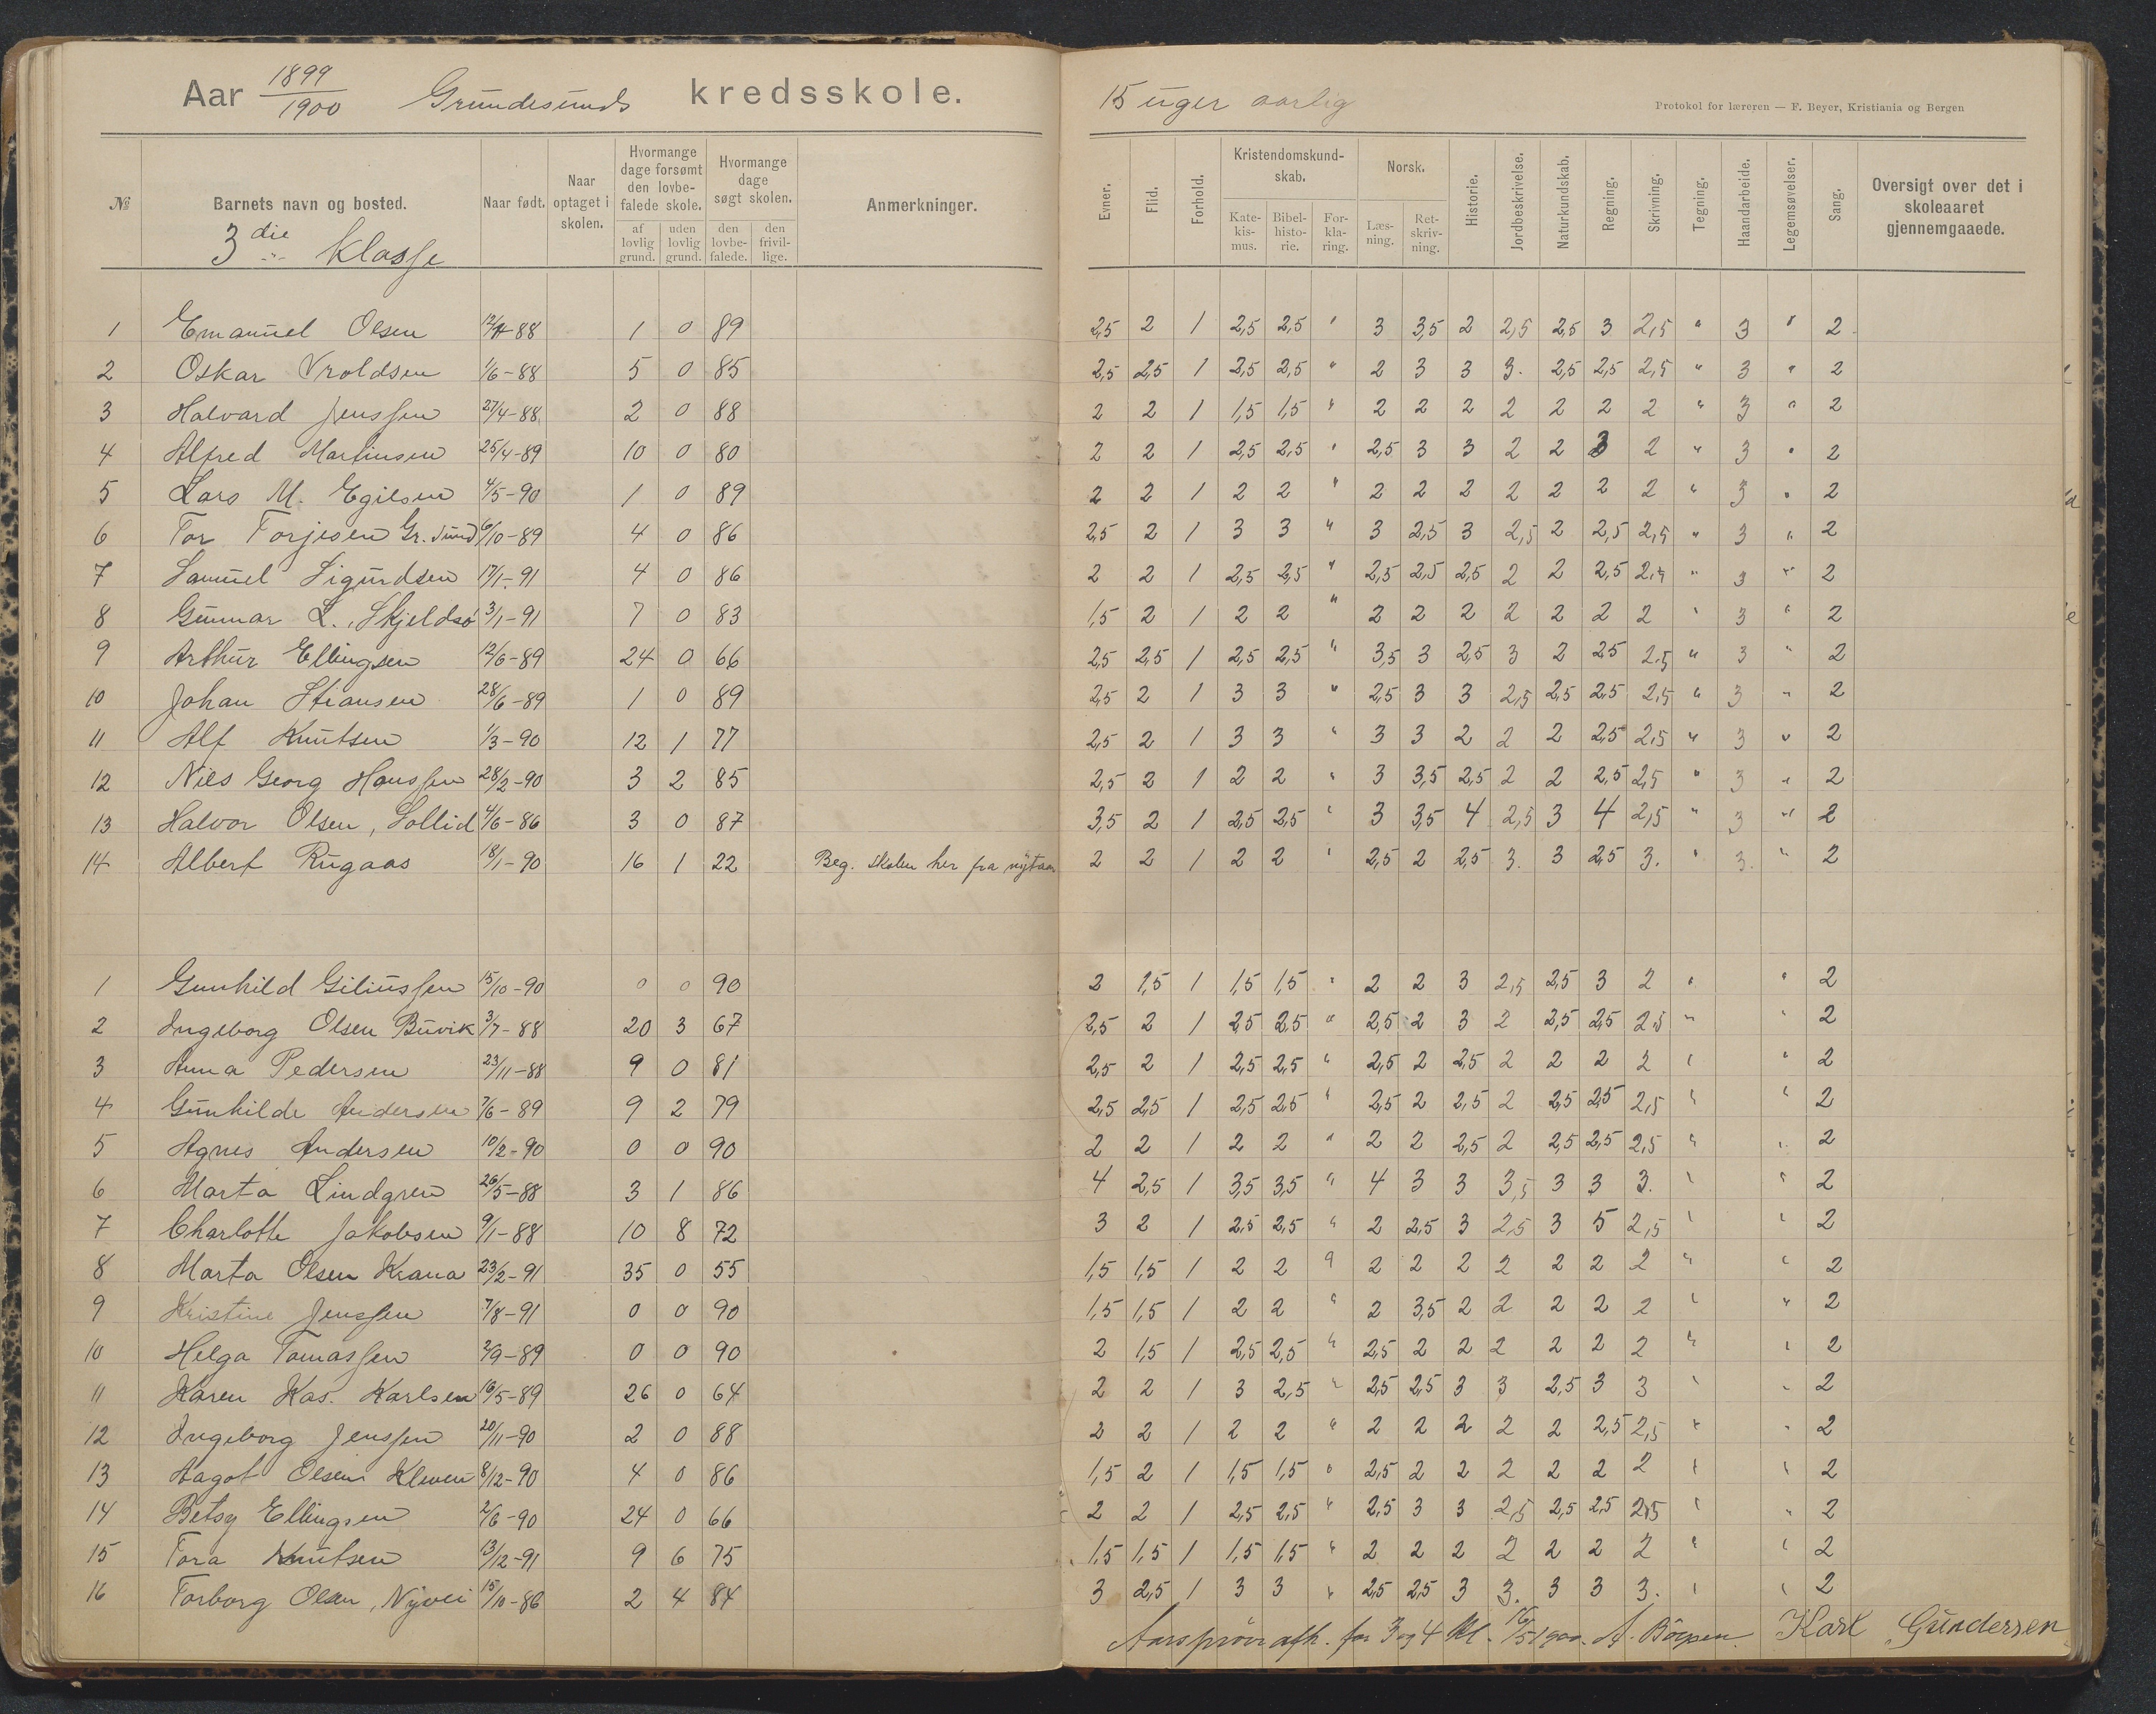 Aar 1899/1900 Grundesunds kredsskole.
№ Barnets navn og bosted. Naar født. Naar optaget i skolen. Hvormange dage forsømt den lovbefalede skole. af lovlig grund. uden lovlig grund. Hvormange dage søgt skolen. den lovbefalede. den frivillige. Anmerkninger.
3die Klasse
1 Emanuel Olsen 88 1 0 89
2 Oskar Vroldsen 1/6-88 5 0 85
3 Halvard Jenssen 27/4-88 2 0 88
4 Alfred Martinsen 25/4-89 10 0 80
5 Lars M. Egilsen 4/5-90 1 0 89
6 Tor Torjesen Gr. sund 6/10-89 4 0 86
7 Samuel Sigurdsen 17/1-91 4 0 86
8 Gunnar L. Skjeldsø 3/1-91 7 0 83
9 Arthur Ellingsen 12/6-89 24 0 66
10 Johan Stiansen 28/6-89 1 0 89
11 Alf Knutsen 1/3-90 12 1 77
12 Nils Georg Hanssen 28/2-90 3 2 85
13 Halvor Olsen, Sollid 4/6-86 3 0 87
14 Albert Rugaas 18/1-90 16 1 22 Beg. skolen her fra nytaar
1 Gunhild Giliussen 15/10-90 0 0 90
2 Ingeborg Olsen Buvik 3/7-88 20 3 67
3 Anna Pedersen 23/11-88 9 0 81
4 Gunhilde Andersen 7/6-89 9 2 79
5 Agnes Andersen 10/2-90 0 0 90
6 Marta Lindgren 26/5-88 3 1 86
7 Charlotte Jakobsen 9/1-88 10 8 72
8 Marta Olsen Krana 23/2-91 35 0 55
9 Kristine Jenssen 7/8-91 0 0 90
10 Helga Tomassen 2/9-89 0 0 90
11 Karen Kas. Karlsen 16/5-89 26 0 64
12 Ingeborg Jenssen 20/11-90 2 0 88
13 Aagot Olsen Kleven 8/12-90 4 0 86
14 Betsy Ellingsen 2/6-90 24 0 66
15 Tora Knutsen 13/12-91 9 6 75
16 Torborg Olsen, Nyvei 15/10-86 2 4 84
15 uger aarlig
Protokol for læreren — F. Beyer, Kristiania og Bergen
Evner. Flid. Forhold. Kristendomskundskab. Katekismus. Bibelhistorie. Forklaring. Norsk. Læsning. Retskrivning. Historie. Jordbeskrivelse. Naturkundskab. Regning. Skrivning. Tegning. Haandarbeide. Legemsøvelser. Sang. Oversigt over det i skoleaaret gjennemgaaede.
2,5 2 1 2,5 2,5 " 3 3,5 2 2,5 2,5 3 2,5 " 3 " 2
2,5 2,5 1 2,5 2,5 " 2 3 3 3. 2,5 2,5 2,5 " 3 " 2
2 2 1 1,5 1,5 " 2 2 2 2 2 2 2 " 3 " 2
2 2 1 2,5 2,5 " 2,5 3 3 2 2 3 2 " 3 " 2
2 2 1 2 2 " 2 2 2 2 2 2 2 " 3 " 2
2,5 2 1 3 3 " 3 2,5 3 2,5 2 2,5 2,5 " 3 " 2
2 2 1 2,5 2,5 " 2,5 2,5 2,5 2 2 2,5 2,5 " 3 " 2
1,5 2 1 2 2 " 2 2 2 2 2 2 2 " 3 " 2
2,5 2,5 1 2,5 2,5 " 3,5 3 2,5 3 2 2,5 2,5 " 3 " 2
2,5 2 1 3 3 " 2,5 3 3 2,5 2,5 2,5 2,5 " 3 " 2
2,5 2 1 3 3 " 3 3 2 2 2 2,5 2,5 " 3 " 2
2,5 2 1 2 2 " 3 3,5 2,5 2 2 2,5 2,5 " 3 " 2
3,5 2 1 2,5 2,5 " 3 3,5 4 2,5 3 4 2,5 " 3 " 2
2 2 1 2 2 " 2,5 2 2,5 3. 3 2,5 3. " 3. " 2
2 1,5 1 1,5 1,5 " 2 2 3 2,5 2,5 3 2 " " 2
2,5 2 1 2,5 2,5 " 2,5 2 3 2 2,5 2,5 2,5 " " 2
2,5 2 1 2,5 2,5 " 2,5 2 2,5 2 2 2 2 " " 2
2,5 2,5 1 2,5 2,5 " 2,5 2 2,5 2 2,5 2,5 2,5 " " 2
2 2 1 2 2 " 2 2 2,5 2 2,5 2,5 2,5 " " 2
4 2,5 1 3,5 3,5 " 4 3 3 3,5 3 3 3. " " 2
3 2 1 2,5 2,5 " 2 2,5 3 2,5 3 5 2,5 " " 2
1,5 1,5 1 2 2 " 2 2 2 2 2 2 2 " " 2
1,5 1,5 1 2 2 " 2 3,5 2 2 2 2 2 " " 2
2 1,5 1 2,5 2,5 " 2,5 2 2 2 2 2 2 " " 2
2 2 1 3 2,5 " 2,5 2,5 3 3 2,5 3 3 " " 2
2 2 1 2 2 " 2 2 2 2 2 2,5 2,5 " " 2
1,5 2 1 1,5 1,5 " 2,5 2 2 2 2 2 2 " " 2
2 2 1 2,5 2,5 " 2,5 3 3 2,5 2,5 2,5 2,5 " " 2
1,5 1,5 1 1,5 1,5 " 2 2 2 2 2 2 2 " " 2
3 2,5 1 3 3 " 2,5 2,5 3 3. 3 3 3. " " 2
Aarsprøve afh. for 3 og 4 Kl. 16/5 1900. Karl Gundersen